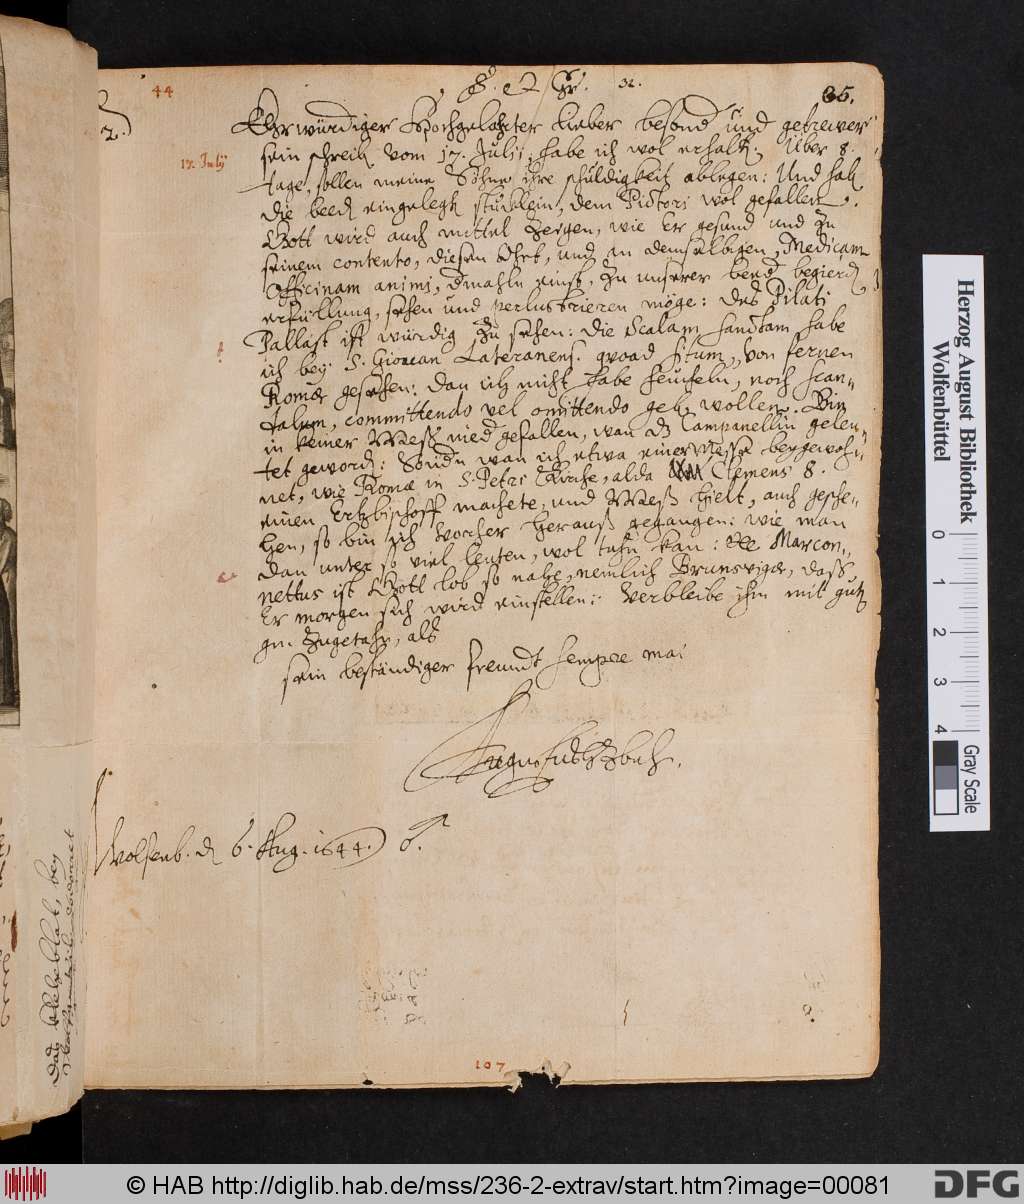 44
32.
35.
2.
Ehrwürdiger Hochgelahrter lieber besond. und getrewer
17. July
sein schreib. vom 17. Julij, habe ich wol erhalt. Über 8.
tage, sollen meine Söhne ihre schüldigkeit ablegen: Und hab.
die beed. eingelegt. stücklein, dem Pictori wol gefallen.
Gott wird auch mittel zeigen, wie Er gesund und zu
seinem contento, diesen Ohrt, und in demselbigen, Medicam
Officinam animi, dmahln einst, zu unserer beed. begierd.
erfüllung, sehen und perlustrieren möge: des Pilati
Pallast ist würdig zu sehen: die Scalam sanctam habe
ich bey S. Giovan Lateranens. quoad situm, von fernen
Romæ gesehen: dan ich nicht habe heucheln, noch scan-
dalum, committendo vel omittendo geb. wollen. Bin
in keiner Meß nied. gefallen, wan dz Campanellin gelen-
tet geword.: Sond.n wan ich etwa einer Messe beygewoh-
net, wie Romæ in S. Petri Kirche, alda Clemens 8.
einen Ertzbischoff machete, und Meß hielt, auch gesche-
hen, so bin ich vorher herauß gegangen: wie man
dan unter so viel leuten, wol tuhn kan: Marcon-
nettus ist Gott lob so nahe, nemlich Brunsvigæ, dass
Er morgen sich wird einstellen: Verbleibe ihm mit gut.
gn. zugetahn, als
sein beständiger freundt semper mai
Augustus HzBuL.
Wolfenb. d. 6. Aug. 1644.
107
Das Klebeblat, bey
Herzog August Bibliothek
Wolfenbüttel
0 1 2 3 4
Gray Scale
© HAB http://diglib.hab.de/mss/236-2-extrav/start.htm?image=00081
DFG